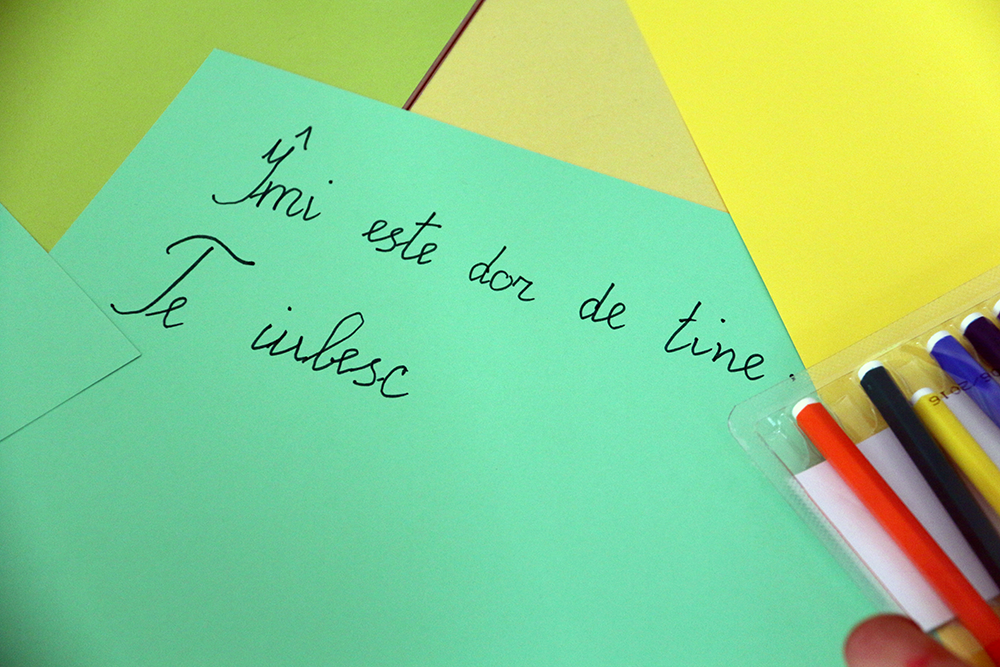 Îmi este dor de tine.
Te iubesc